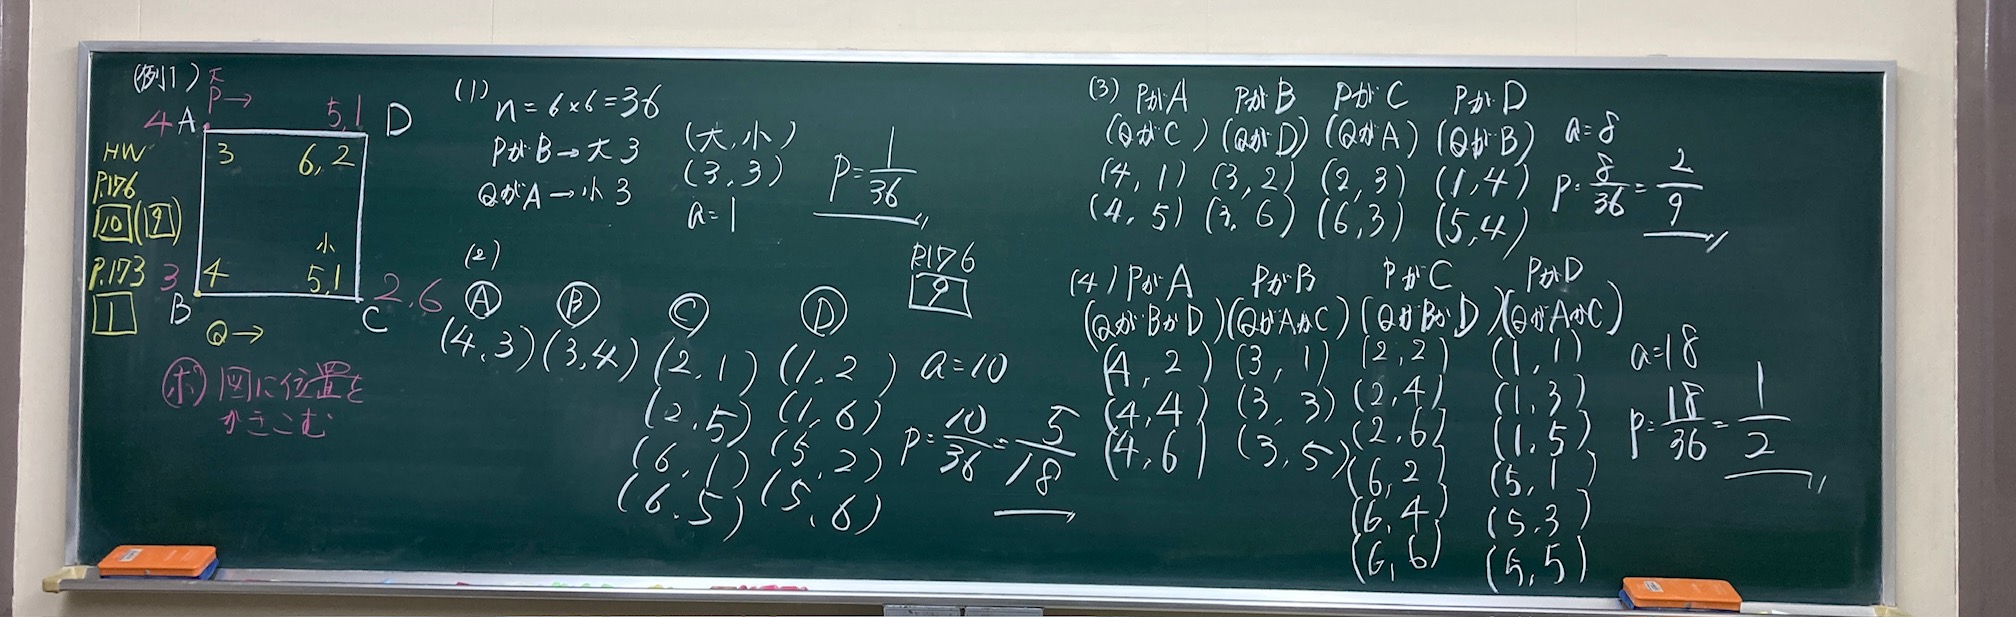 (例1)
大
P→
4 A 5,1 D
3 6,2
HW
P.176
10 (9)
P.173
1
小
3 4 5,1
B C 2,6
Q→
㋭ 図に位置を
かきこむ
(1) n=6×6=36
PがB→大3
QがA→小3
(大,小)
(3,3)
a=1
P=1/36
(2)
Ⓐ Ⓑ Ⓒ Ⓓ
(4,3) (3,4) (2,1) (1,2)
(2,5) (1,6)
(6,1) (5,2)
(6,5) (5,6)
a=10
P=10/36=5/18
P.176
9
(3) PがA PがB PがC PがD
(QがC) (QがD) (QがA) (QがB)
(4,1) (3,2) (2,3) (1,4)
(4,5) (3,6) (6,3) (5,4)
a=8
P=8/36=2/9
(4) PがA PがB PがC PがD
(QがBかD) (QがAかC) (QがBかD) (QがAかC)
(4,2) (3,1) (2,2) (1,1)
(4,4) (3,3) (2,4) (1,3)
(4,6) (3,5) (2,6) (1,5)
(6,2) (5,1)
(6,4) (5,3)
(6,6) (5,5)
a=18
P=18/36=1/2